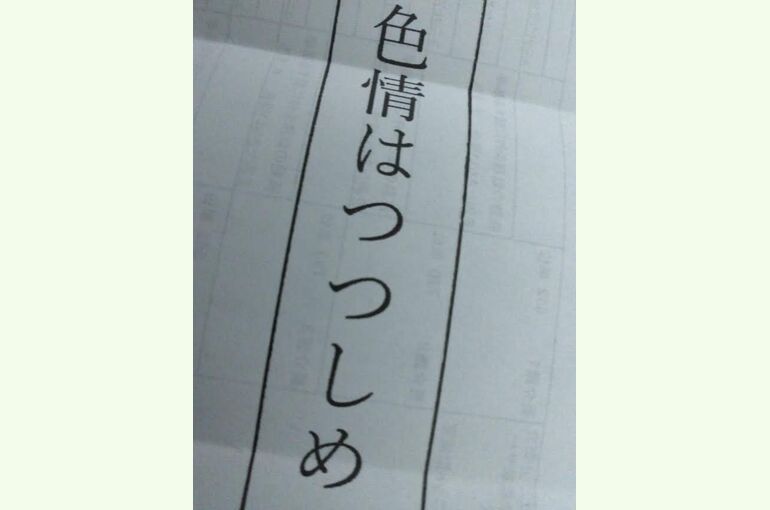 色情はつつしめ